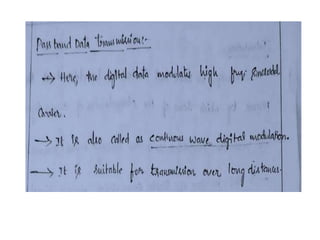 Pass band Data transmission:-
→ Here, the digital data modulates high freq. sinusoidal
Carrier.
→ It is also called as continuous wave digital modulation.
→ It is suitable for transmission over long distances.